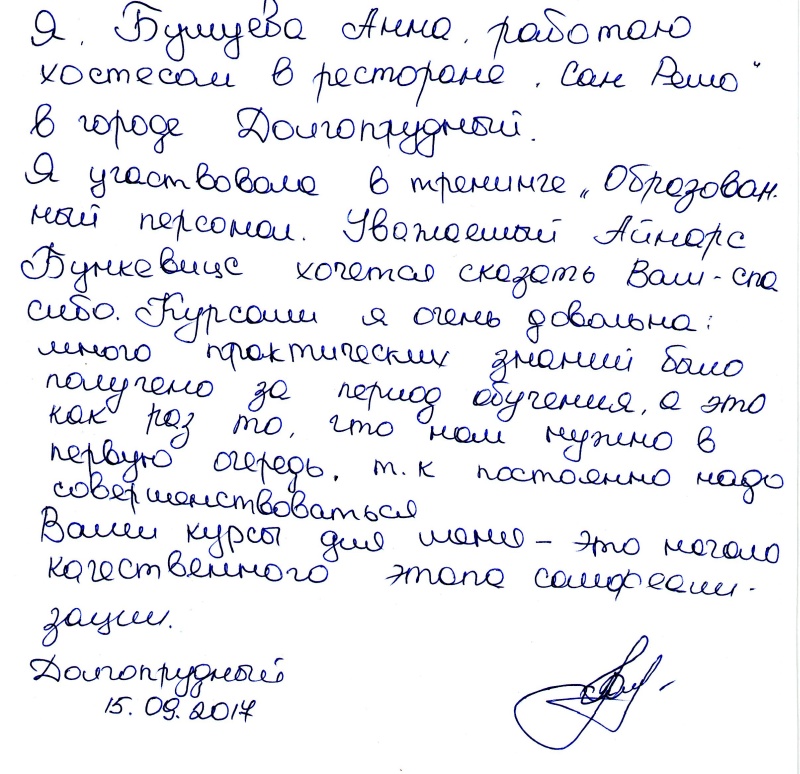 Я, Бущуева Анна, работаю
хостесом в ресторане „Сан Ремо"
в городе Долгопрудный.
Я участвовала в тренинге „Образован-
ный персонал. Уважаемый Айнарс
Бункевицс хочется сказать Вам-спа
сибо. Курсами я очень довольна:
много практических знаний было
получено за период обучения, а это
как раз то, что нам нужно в
первую очередь, т.к постоянно надо
совершенствоваться
Ваши курсы для меня – это начало
качественного этапа самореали-
зации.
Долгопрудный
15.09.2017